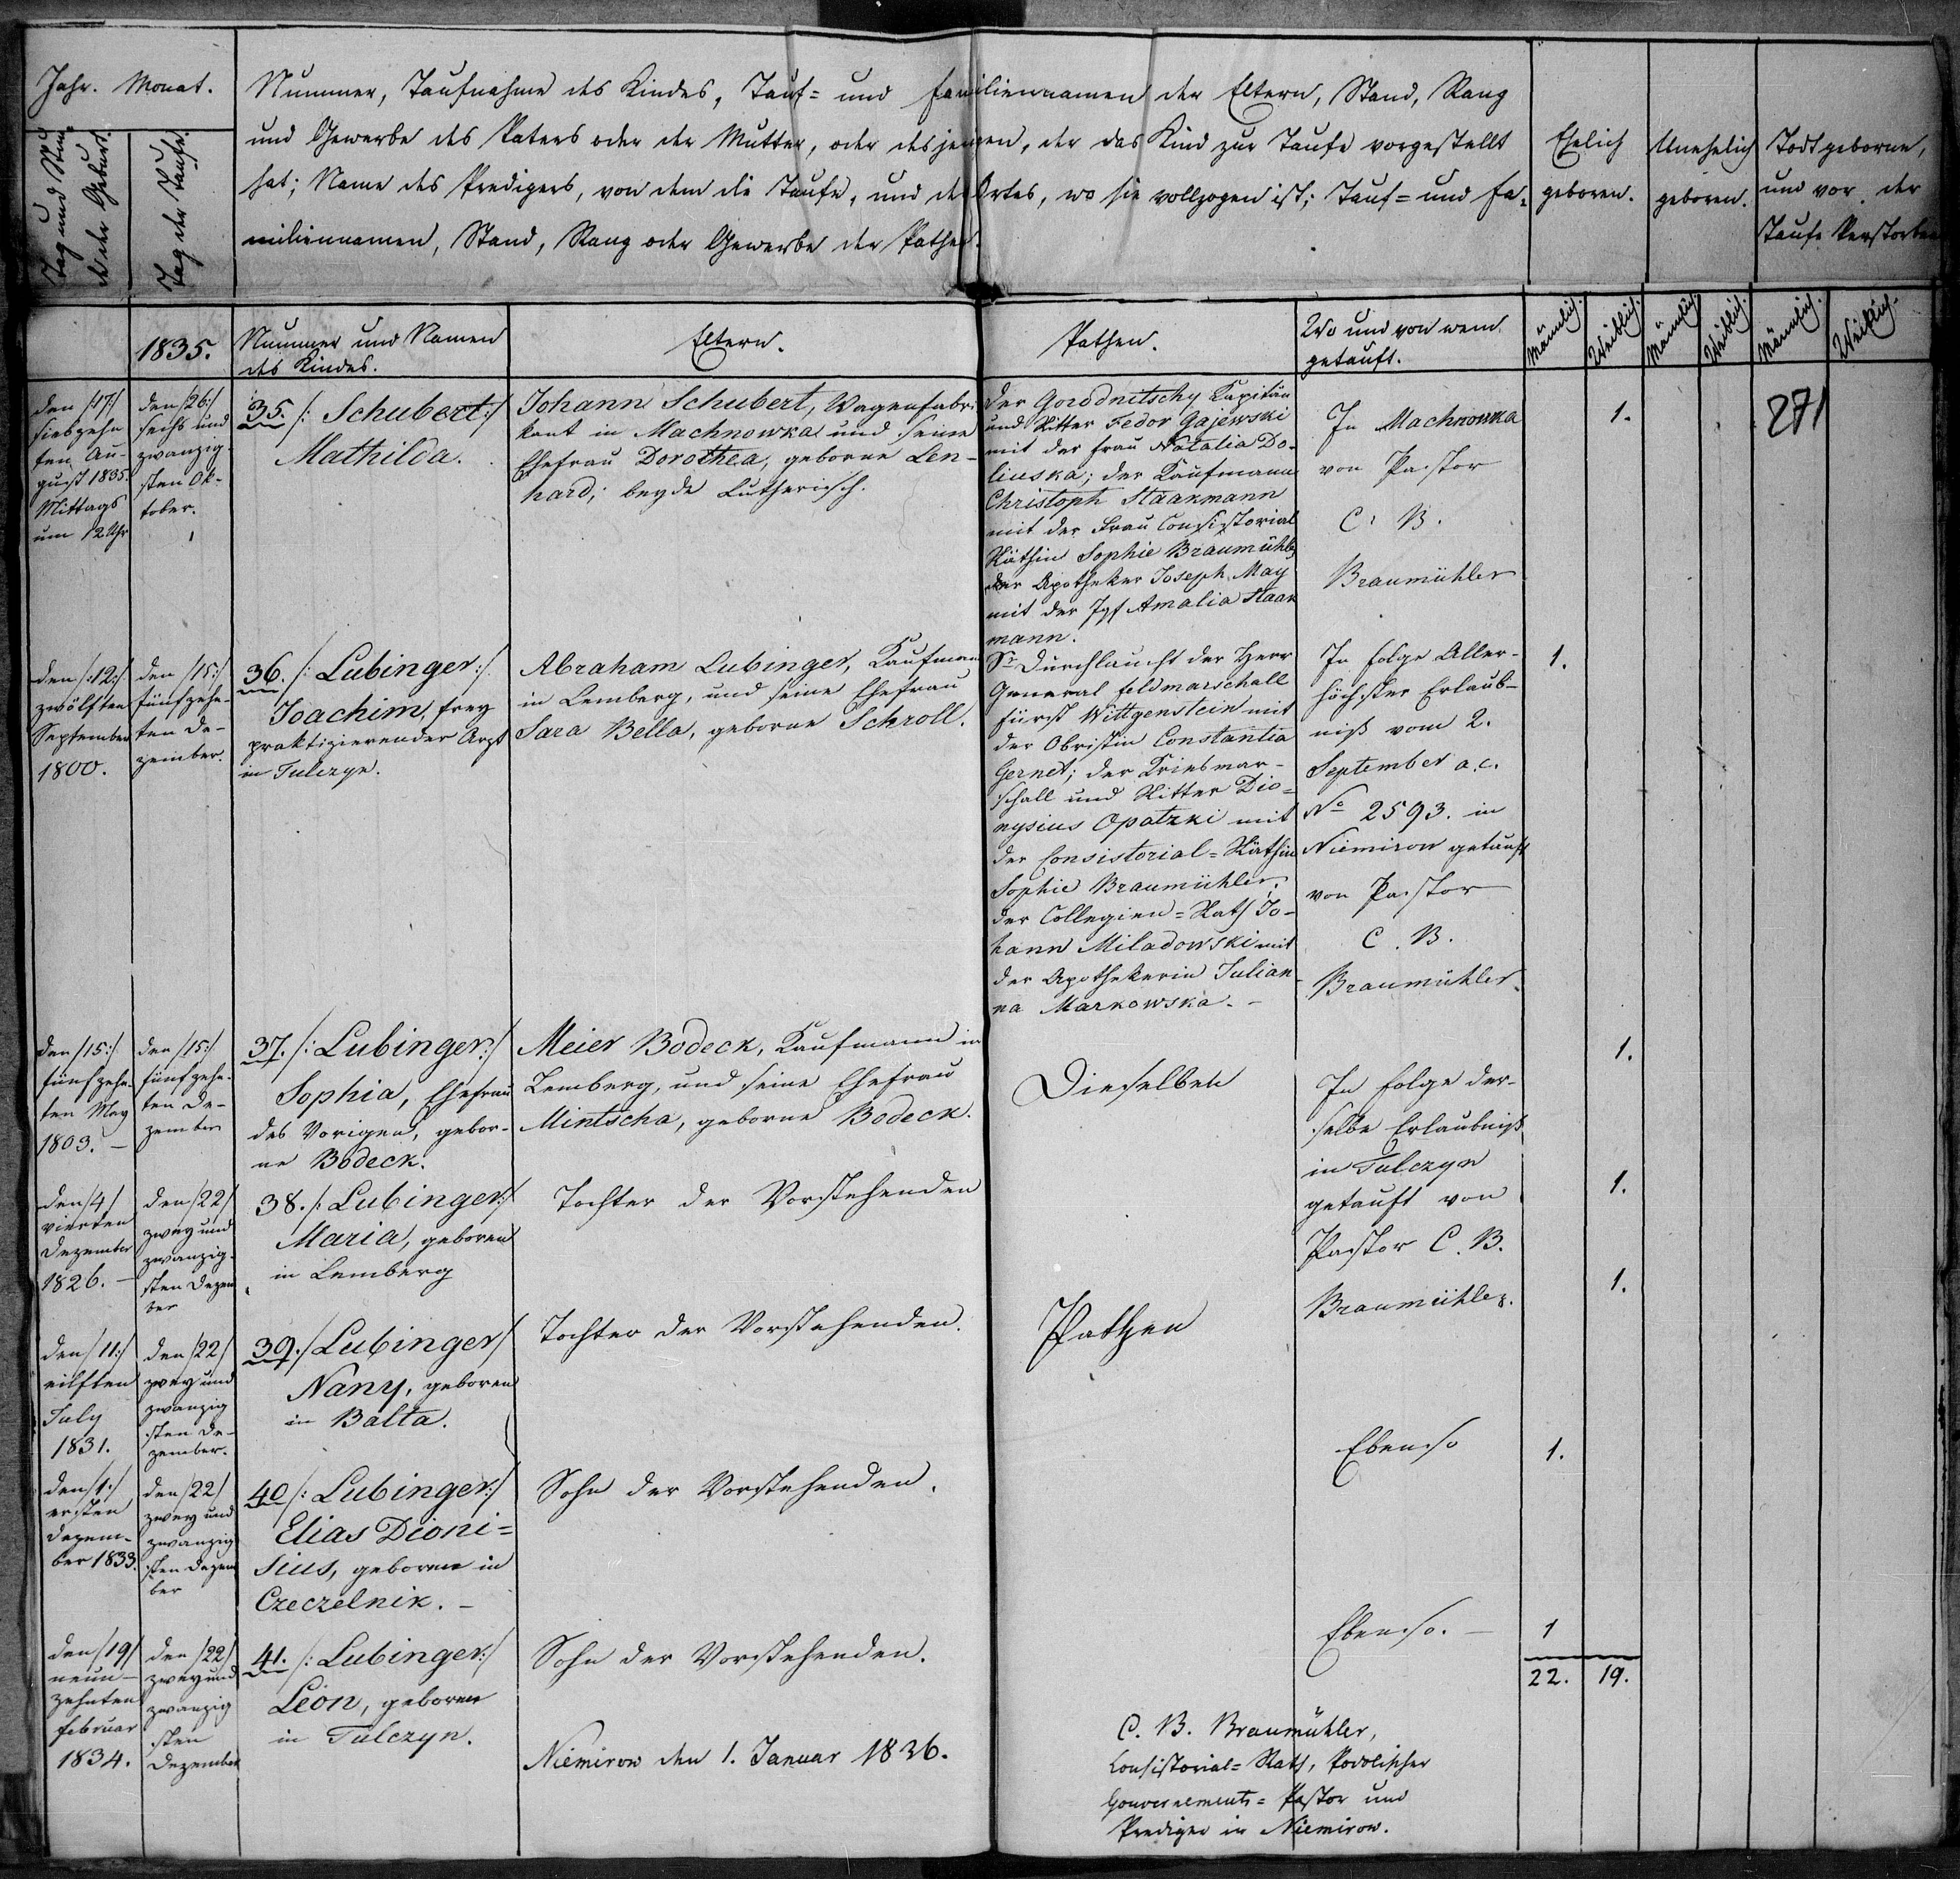 Jahr. Monat.
Tag und Stunde der Geburt.
Tag der Taufe.
Nummer, Taufnahme des Kindes, Tauf= und Familiennamen der Eltern, Stand, Rang
und Gewerbe des Vaters oder der Mutter, oder desjenigen, der das Kind zur Taufe vorgestellt
hat; Name des Predigers, von dem die Taufe, und des Ortes, wo sie vollzogen ist; Tauf= und Fa-
miliennamen, Stand, Rang oder Gewerbe der Pathen.
Ehelich
geboren.
Unehelich
geboren.
Todtgeborne,
und vor der
Taufe Verstorbene
1835.
Nummer und Namen
des Kindes.
Eltern.
Pathen.
Wo und von wem
getauft.
Männlich.
Weiblich.
Männlich.
Weiblich.
Männlich.
Weiblich.
271
den /17/
siebzehn
ten Au-
gust 1835.
Mittags
um 12 Uhr
den /26:/
sechs und
zwanzig-
sten Ok-
tober.
35. /: Schubert:/
Mathilda.
Johann Schubert, Wagenfabri-
kant in Machnowka und seine
Ehefrau Dorothea, geborne Len-
hard; beyde Lutherisch.
Der Gorodnitschy Kapitän
und Ritter Fedor Gajewski
mit der Frau Natalia Do-
linska; der Kaufmann
Christoph Haakmann
mit der Frau Consistorial
Räthin Sophie Braumühler
der Apotheker Joseph May
mit der Jgf Amalia Haak
mann.
In Machnowka
von Pastor
C. B.
Braumühler
1.
den /:12:/
zwölften
September
1800.
den /15:/
fünfzehn-
ten De-
zember.
36. /: Lubinger:/
Joachim, frey
praktizierender Arzt
in Tulczyn.
Abraham Lubinger, Kaufmann
in Lemberg, und seine Ehefrau
Sara Bella, geborne Schroll.
Sr Durchlaucht der Herr
General Feldmarschall
Fürst Wittgenstein mit
der Obristin Constantia
Gernet; der Kreismar-
schall und Ritter Dio-
nysius Opatzki mit
der Consistorial=Räthin
Sophie Braumühler;
der Collegien=Rath Jo-
hann Miladowski mit
der Apothekerin Julian-
na Markowska. -
In Folge Aller-
höchster Erlaub-
niß vom 2.
September a.c.
No 2593. in
Niemirow getauft
von Pastor
C. B.
Braumühler.
1.
den /15:/
fünfzehn-
ten May
1803. -
den /15:/
fünfzehn-
ten De-
zember
37. /: Lubinger:/
Sophia, Ehefrau
des Vorigen, gebor-
ne Bodeck.
Meier Bodeck, Kaufmann in
Lemberg, und seine Ehefrau
Mintscha, geborne Bodeck.
Dieselben
In Folge der-
selbe Erlaubniß
in Tulczyn
getauft von
Pastor C. B.
Braumühler.
1.
den /4/
vierten
Dezember
1826. -
den /22/
zwey und
zwanzig-
sten Dezem
ber
38. /: Lubinger:/
Maria, geboren
in Lemberg
Tochter der Vorstehenden
1.
Pathen
den /11:/
eilften
July
1831.
den /22/
zwey und
zwanzig
sten De-
zember.
39. /Lubinger/
Nany, geboren
in Balta.
Tochter der Vorstehenden.
1.
den /1:/
ersten
Dezem-
ber 1833.
den /22/
zwey und
zwanzig
sten Dezem
ber
40 /: Lubinger:/
Elias Dioni=
sius, geboren in
Czeczelnik. -
Sohn der Vorstehenden.
Ebenso
1.
den /19/
neun-
zehnten
Februar
1834.
den /22/
zwey und
zwanzig
sten
Dezember
41. /: Lubinger:/
Leon, geboren
in Tulczyn.
Sohn der Vorstehenden.
Ebenso. -
1
22. 19.
Niemirow den 1. Januar 1836.
C. B. Braumühler,
Consistorial=Rath, Podolischer
Gouvernements=Pastor und
Prediger in Niemirow.